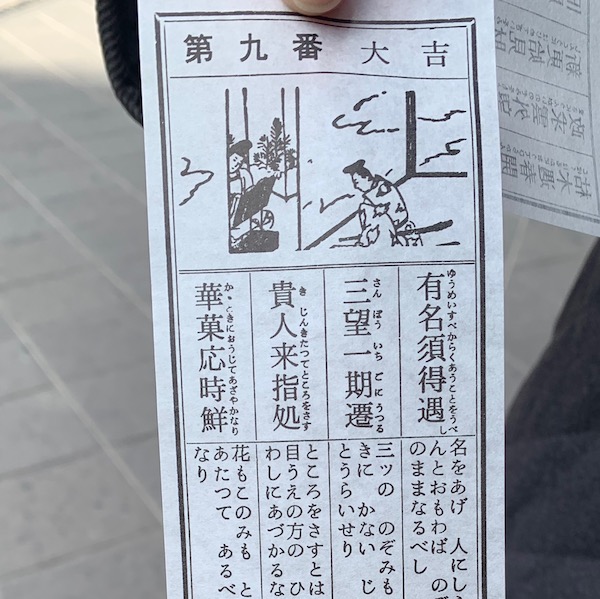 第九番 大吉
有名須得遇
ゆうめいすべからくあうことをうべし
名をあげ 人にし
んとおもわば の
のままなるべし
三望一期遷
さんぼういちごにうつる
三ツの のぞみも
きに かない じ
とうらいせり
貴人来指処
きじんきたつてところをさす
ところをさすとは
目うえの方の ひ
わしにあづかるな
華菓応時鮮
ときにおうじてあざやかなり
花もこのみも と
あたつて あるべ
なり